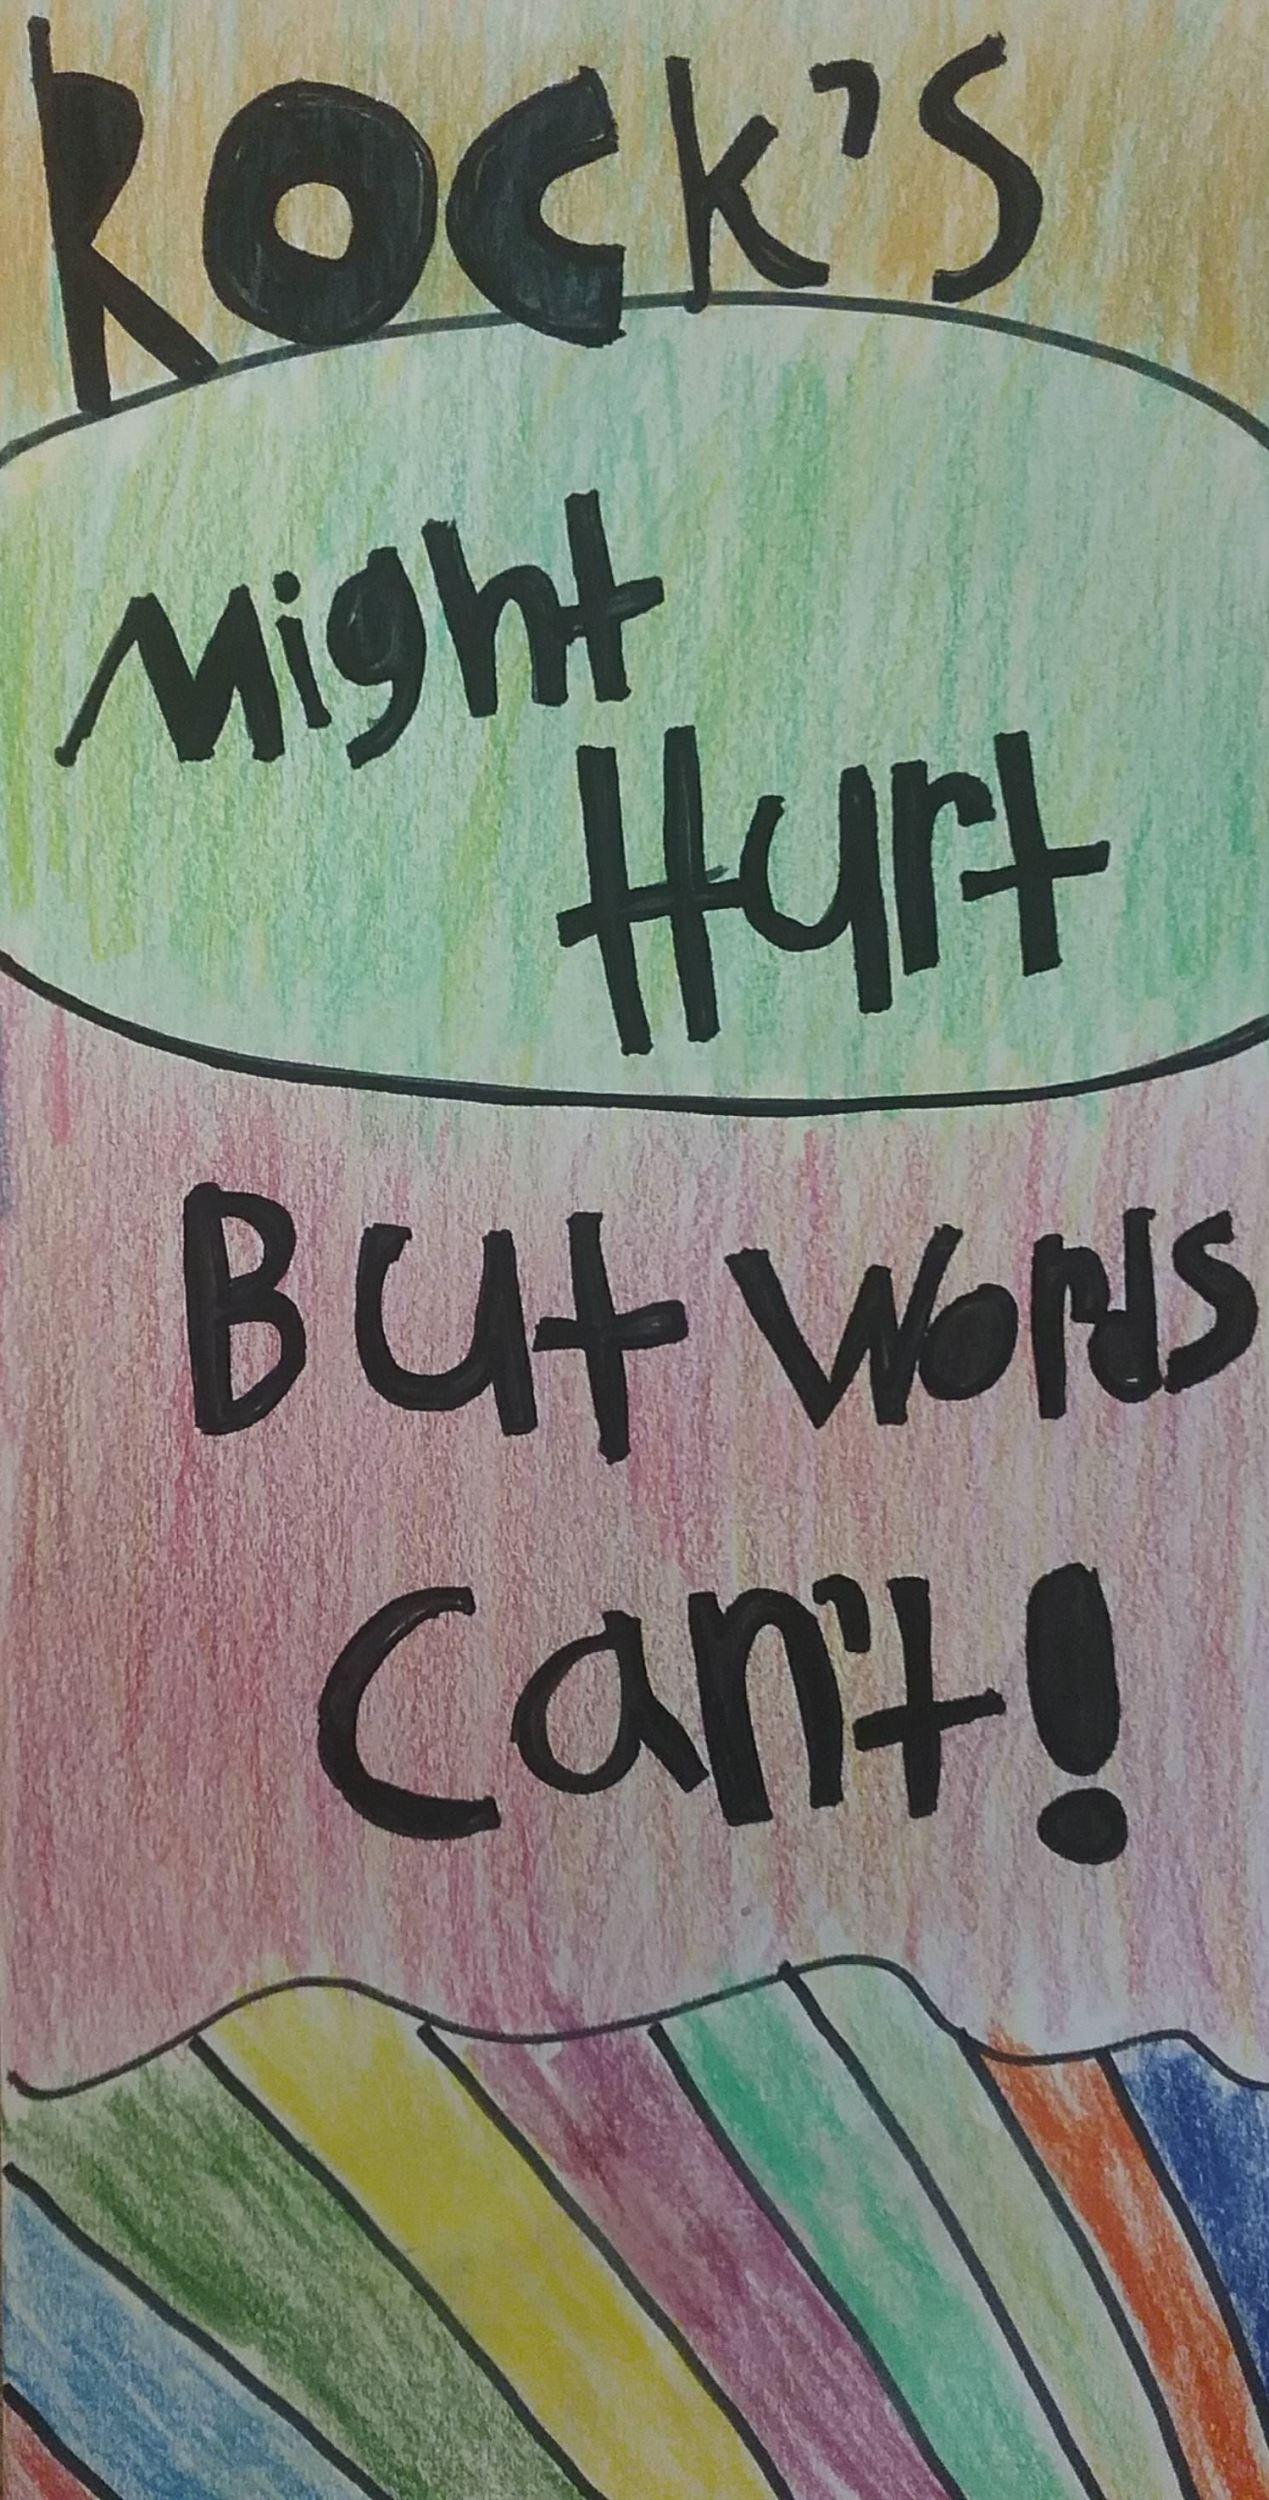 ROCK'S
Might
Hurt
But words
Can't!